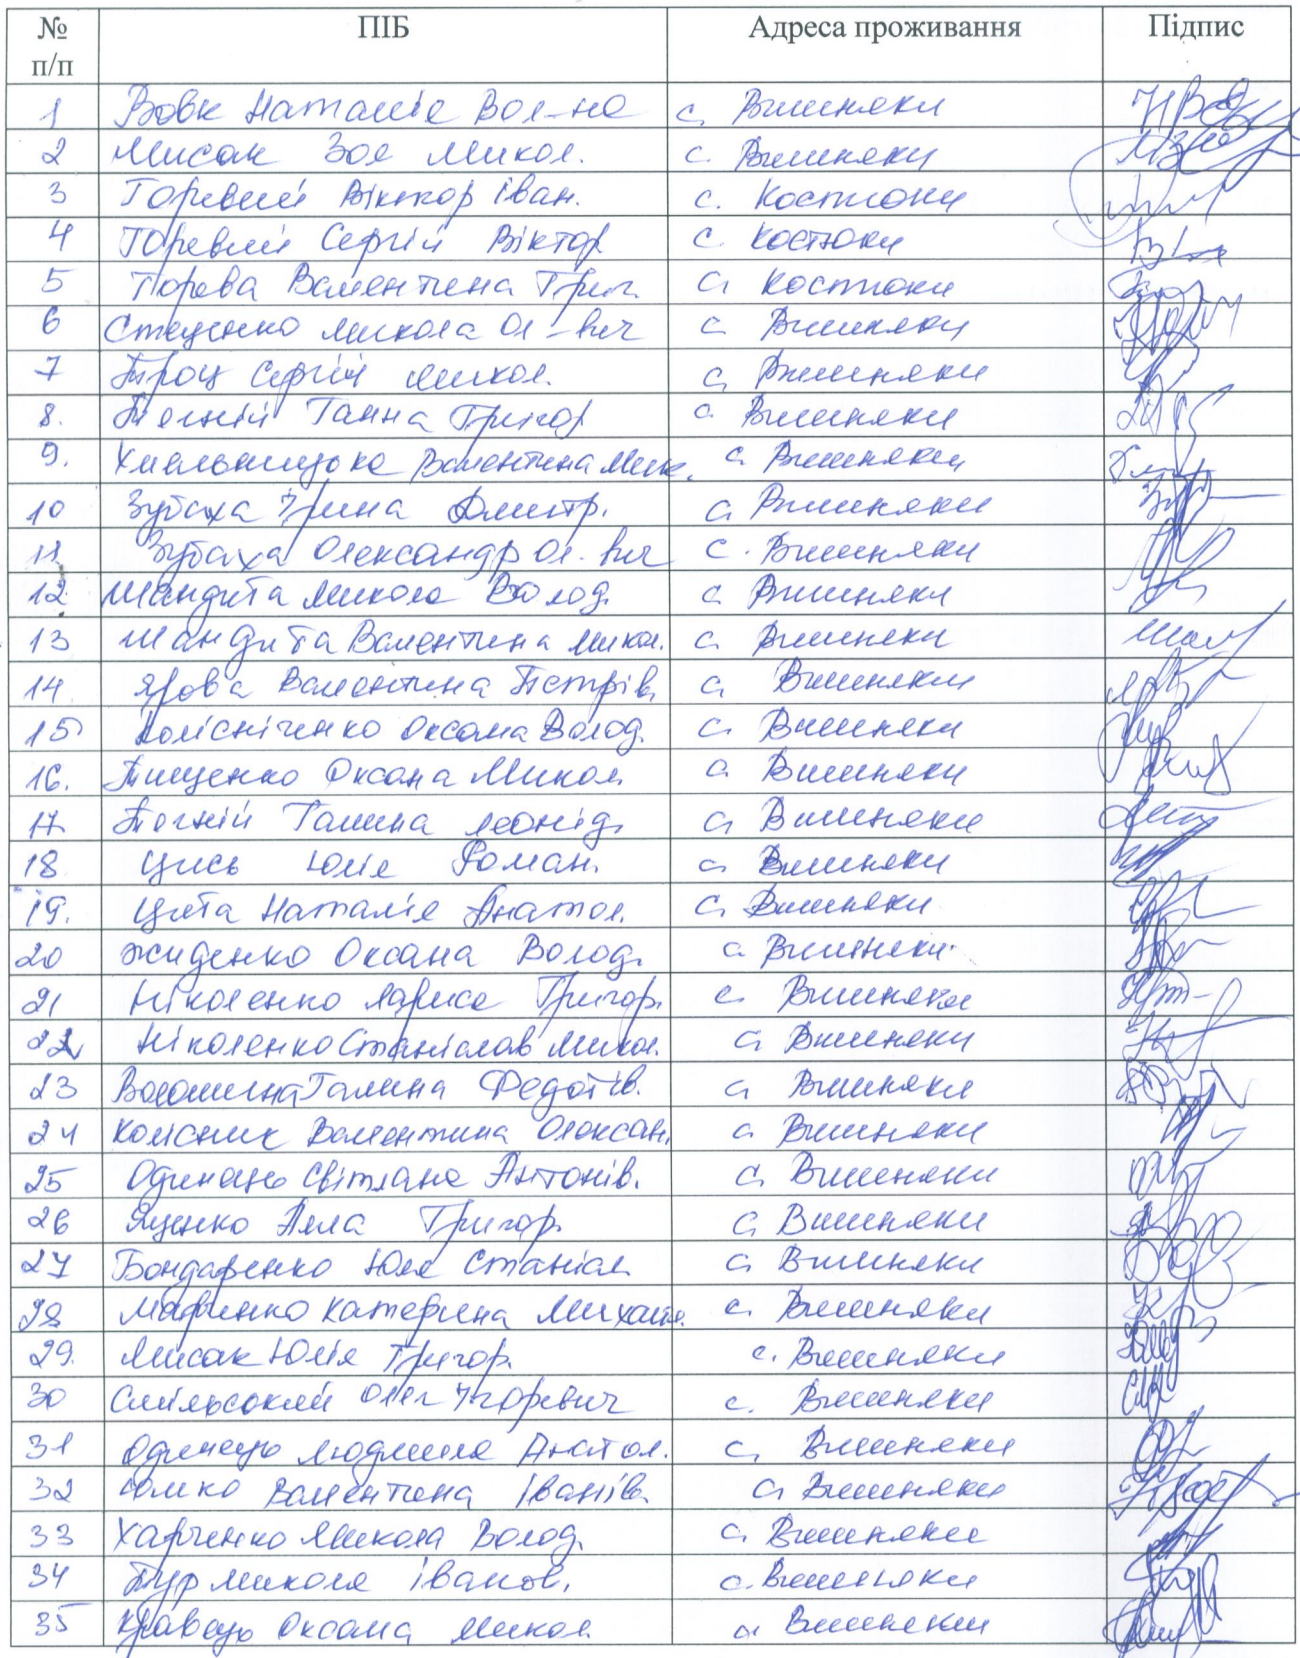 № п/п ПІБ Адреса проживання Підпис
1 Вовк Наталія Вол-на с. Вишняки
2 Мисак Зоя Микол. с. Вишняки
3 Горевий Віктор Іван. с. Костюки
4 Горевий Сергій Віктор с. Костюки
5 Горева Валентина Григ. с. Костюки
6 Стеценко Микола Ол-вич с. Вишняки
7 Троц Сергій Микол. с. Вишняки
8. Ганна Григор с. Вишняки
9. Хмельницька Валентина Мик. с. Вишняки
10 Зубаха Ірина Дмитр. с. Вишняки
11 Зубаха Олександр Ол-вич с. Вишняки
12 Шандита Микола Волод. с. Вишняки
13 Шандита Валентина Микол. с. Вишняки
14. Ярова Валентина Петрів. с. Вишняки
15 Колісніченко Оксана Волод. с. Вишняки
16. Тищенко Оксана Микол. с. Вишняки
17. Галина Леонід. с. Вишняки
18 Цись Юлія Роман. с. Вишняки
19. Наталія Анатол. с. Вишняки
20 Жиденко Оксана Волод. с. Вишняки
21 Ніколенко Лариса Григор. с. Вишняки
22 Ніколенко Станіслав Микол. с. Вишняки
23 Волошина Галина Федотів. с. Вишняки
24 Колісник Валентина Олександ. с. Вишняки
25 Одинець Світлана Антонів. с. Вишняки
26 Яценко Алла Григор. с. Вишняки
27 Бондаренко Юлія Станісл. с. Вишняки
28 Маринко Катерина Михайл. с. Вишняки
29. Мисак Юлія Григор. с. Вишняки
30 Олег Ігоревич с. Вишняки
31 Одинець Людмила Анатол. с. Вишняки
32 Валентина Іванів. с. Вишняки
33 Харченко Микола Волод. с. Вишняки
34 Тур Микола Іванов. с. Вишняки
35 Кравець Оксана Микол. с. Вишняки